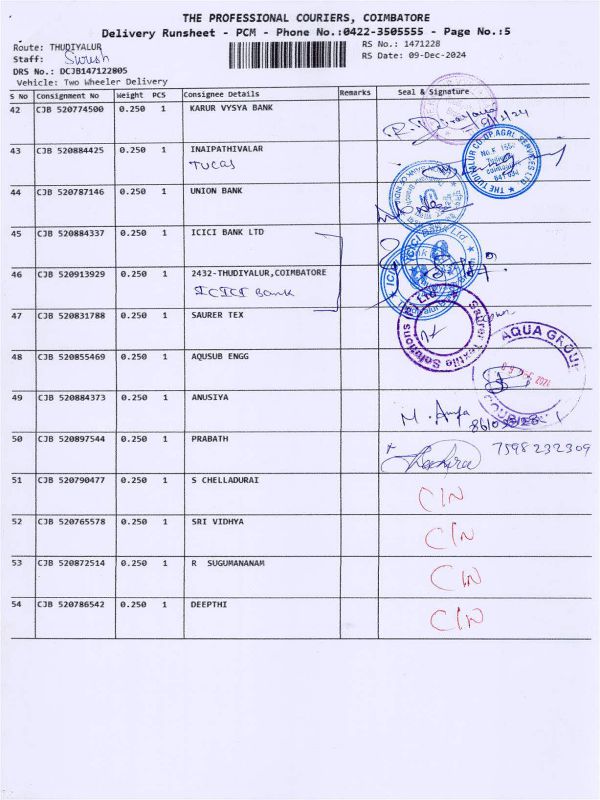 THE PROFESSIONAL COURIERS, COIMBATORE
Delivery Runsheet - PCM - Phone No.:0422-3505555 - Page No.:5
Route: THUDIYALUR
RS No.: 1471228
Staff: Suresh
RS Date: 09-Dec-2024
DRS No.: DCJB147122805
Vehicle: Two Wheeler Delivery
S No Consignment No Weight PCS Consignee Details Remarks Seal & Signature
42 CJB 520774500 0.250 1 KARUR VYSYA BANK
43 CJB 520884425 0.250 1 INAIPATHIVALAR
Tucas
THE TUDIYALUR CO-OP.AGRL. SERVICES LTD.
44 CJB 520787146 0.250 1 UNION BANK
45 CJB 520884337 0.250 1 ICICI BANK LTD
ICICI Bank Ltd.
46 CJB 520913929 0.250 1 2432-THUDIYALUR,COIMBATORE
ICICI Bank
47 CJB 520831788 0.250 1 SAURER TEX
Saurer Textile Solutions Ltd
48 CJB 520855469 0.250 1 AQUSUB ENGG
AQUA GROUP
49 CJB 520884373 0.250 1 ANUSIYA
50 CJB 520897544 0.250 1 PRABATH 7598232309
51 CJB 520790477 0.250 1 S CHELLADURAI C/N
52 CJB 520765578 0.250 1 SRI VIDHYA C/N
53 CJB 520872514 0.250 1 R SUGUMANANAM C/N
54 CJB 520786542 0.250 1 DEEPTHI C/N